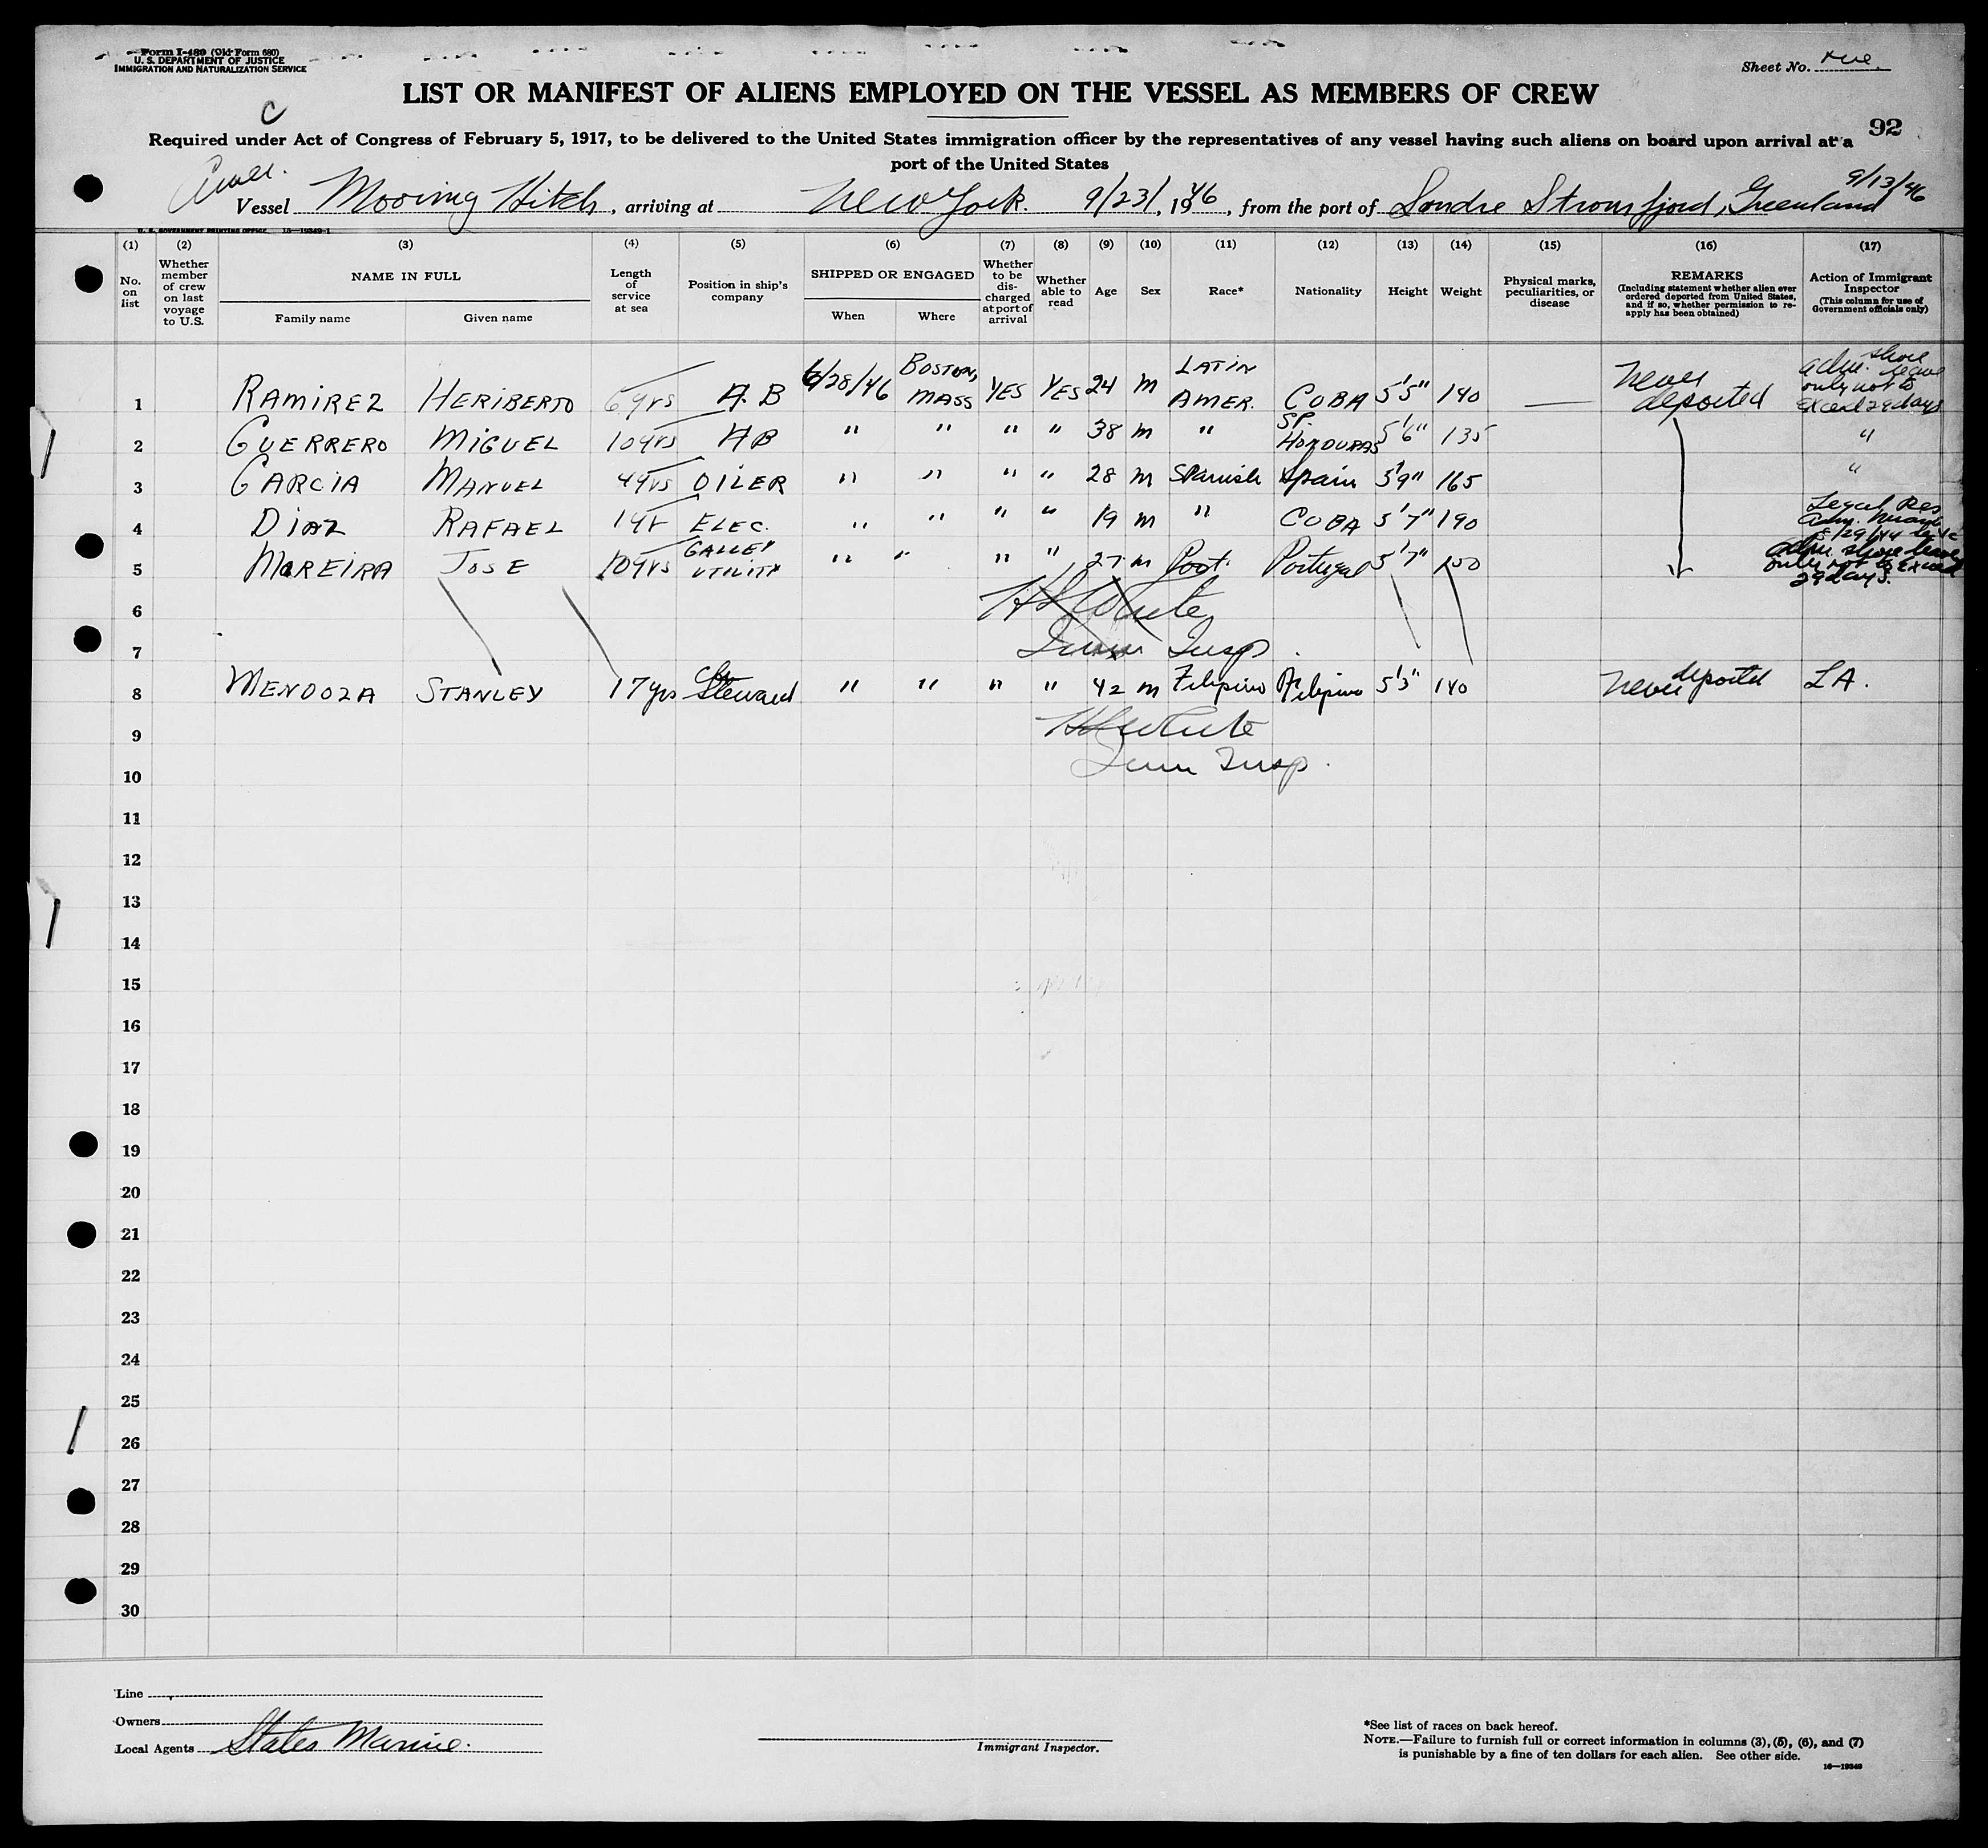 Form I-480 (Old Form 680)
U. S. DEPARTMENT OF JUSTICE
IMMIGRATION AND NATURALIZATION SERVICE
Sheet No.
LIST OR MANIFEST OF ALIENS EMPLOYED ON THE VESSEL AS MEMBERS OF CREW
C
92
Required under Act of Congress of February 5, 1917, to be delivered to the United States immigration officer by the representatives of any vessel having such aliens on board upon arrival at a
port of the United States
Amer.
9/13/46
Vessel Mooring Hitch, arriving at New York. 9/23/, 1946, from the port of Sondre Stromfjord, Greenland
U. S. GOVERNMENT PRINTING OFFICE 16—19349-1
(1) (2) (3) (4) (5) (6) (7) (8) (9) (10) (11) (12) (13) (14) (15) (16) (17)
No. on list
Whether member of crew on last voyage to U.S.
NAME IN FULL
Family name Given name
Length of service at sea
Position in ship's company
SHIPPED OR ENGAGED
When Where
Whether to be discharged at port of arrival
Whether able to read
Age
Sex
Race*
Nationality
Height
Weight
Physical marks, peculiarities, or disease
REMARKS
(Including statement whether alien ever ordered deported from United States, and if so, whether permission to re-apply has been obtained)
Action of Immigrant Inspector
(This column for use of Government officials only)
1 RAMIREZ HERIBERTO 6 yrs A.B 6/28/46 BOSTON, MASS YES YES 24 M LATIN AMER. CUBA 5'5" 140 — Never deported adm. shore leave only not to exceed 29 days
2 GUERRERO MIGUEL 10 yrs AB " " " " 38 M " SP. HONDURAS 5'6" 135 "
3 GARCIA MANUEL 4 yrs OILER " " " " 28 M Spanish Spain 5'9" 165 "
4 DIAZ RAFAEL 1 yr ELEC. " " " " 19 M " CUBA 5'7" 190 Legal Res adm. Miami
5 MOREIRA JOSE 10 yrs GALLEY UTILITY " " " " 27 M Port. Portugal 5'7" 150 adm. shore leave only not to exceed 29 days.
6 H White
7 Imm Insp.
8 MENDOZA STANLEY 17 yrs Ch Steward " " " " 42 M Filipino Filipino 5'3" 140 never deported LA.
9 H White
10 Imm Insp.
11
12
13
14
15
16
17
18
19
20
21
22
23
24
25
26
27
28
29
30
Line
Owners
Local Agents States Marine.
Immigrant Inspector.
*See list of races on back hereof.
NOTE.—Failure to furnish full or correct information in columns (3), (5), (6), and (7)
is punishable by a fine of ten dollars for each alien. See other side.
16—19349